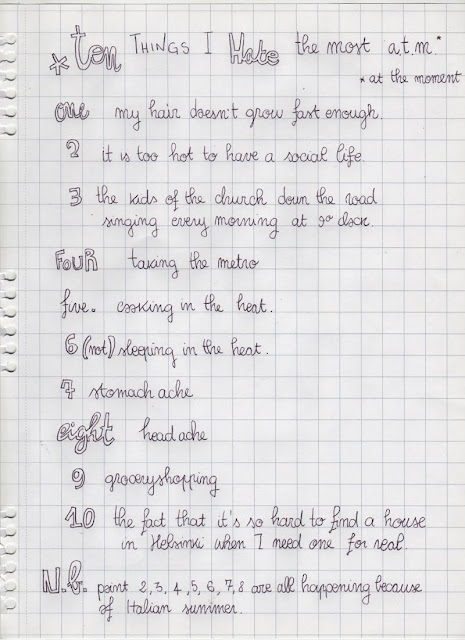 *ten THINGS I Hate the most a.t.m.*
*at the moment
one my hair doesn't grow fast enough.
2 it is too hot to have a social life.
3 the kids of the church down the road
singing every morning at 9 o' clock.
FOUR taking the metro
five. cooking in the heat.
6 (not) sleeping in the heat.
7 stomach ache
eight head ache
9 groceryshopping
10 the fact that it's so hard to find a house
in Helsinki when I need one for real.
N.b. point 2, 3, 4, 5, 6, 7, 8 are all happening because
of Italian summer.